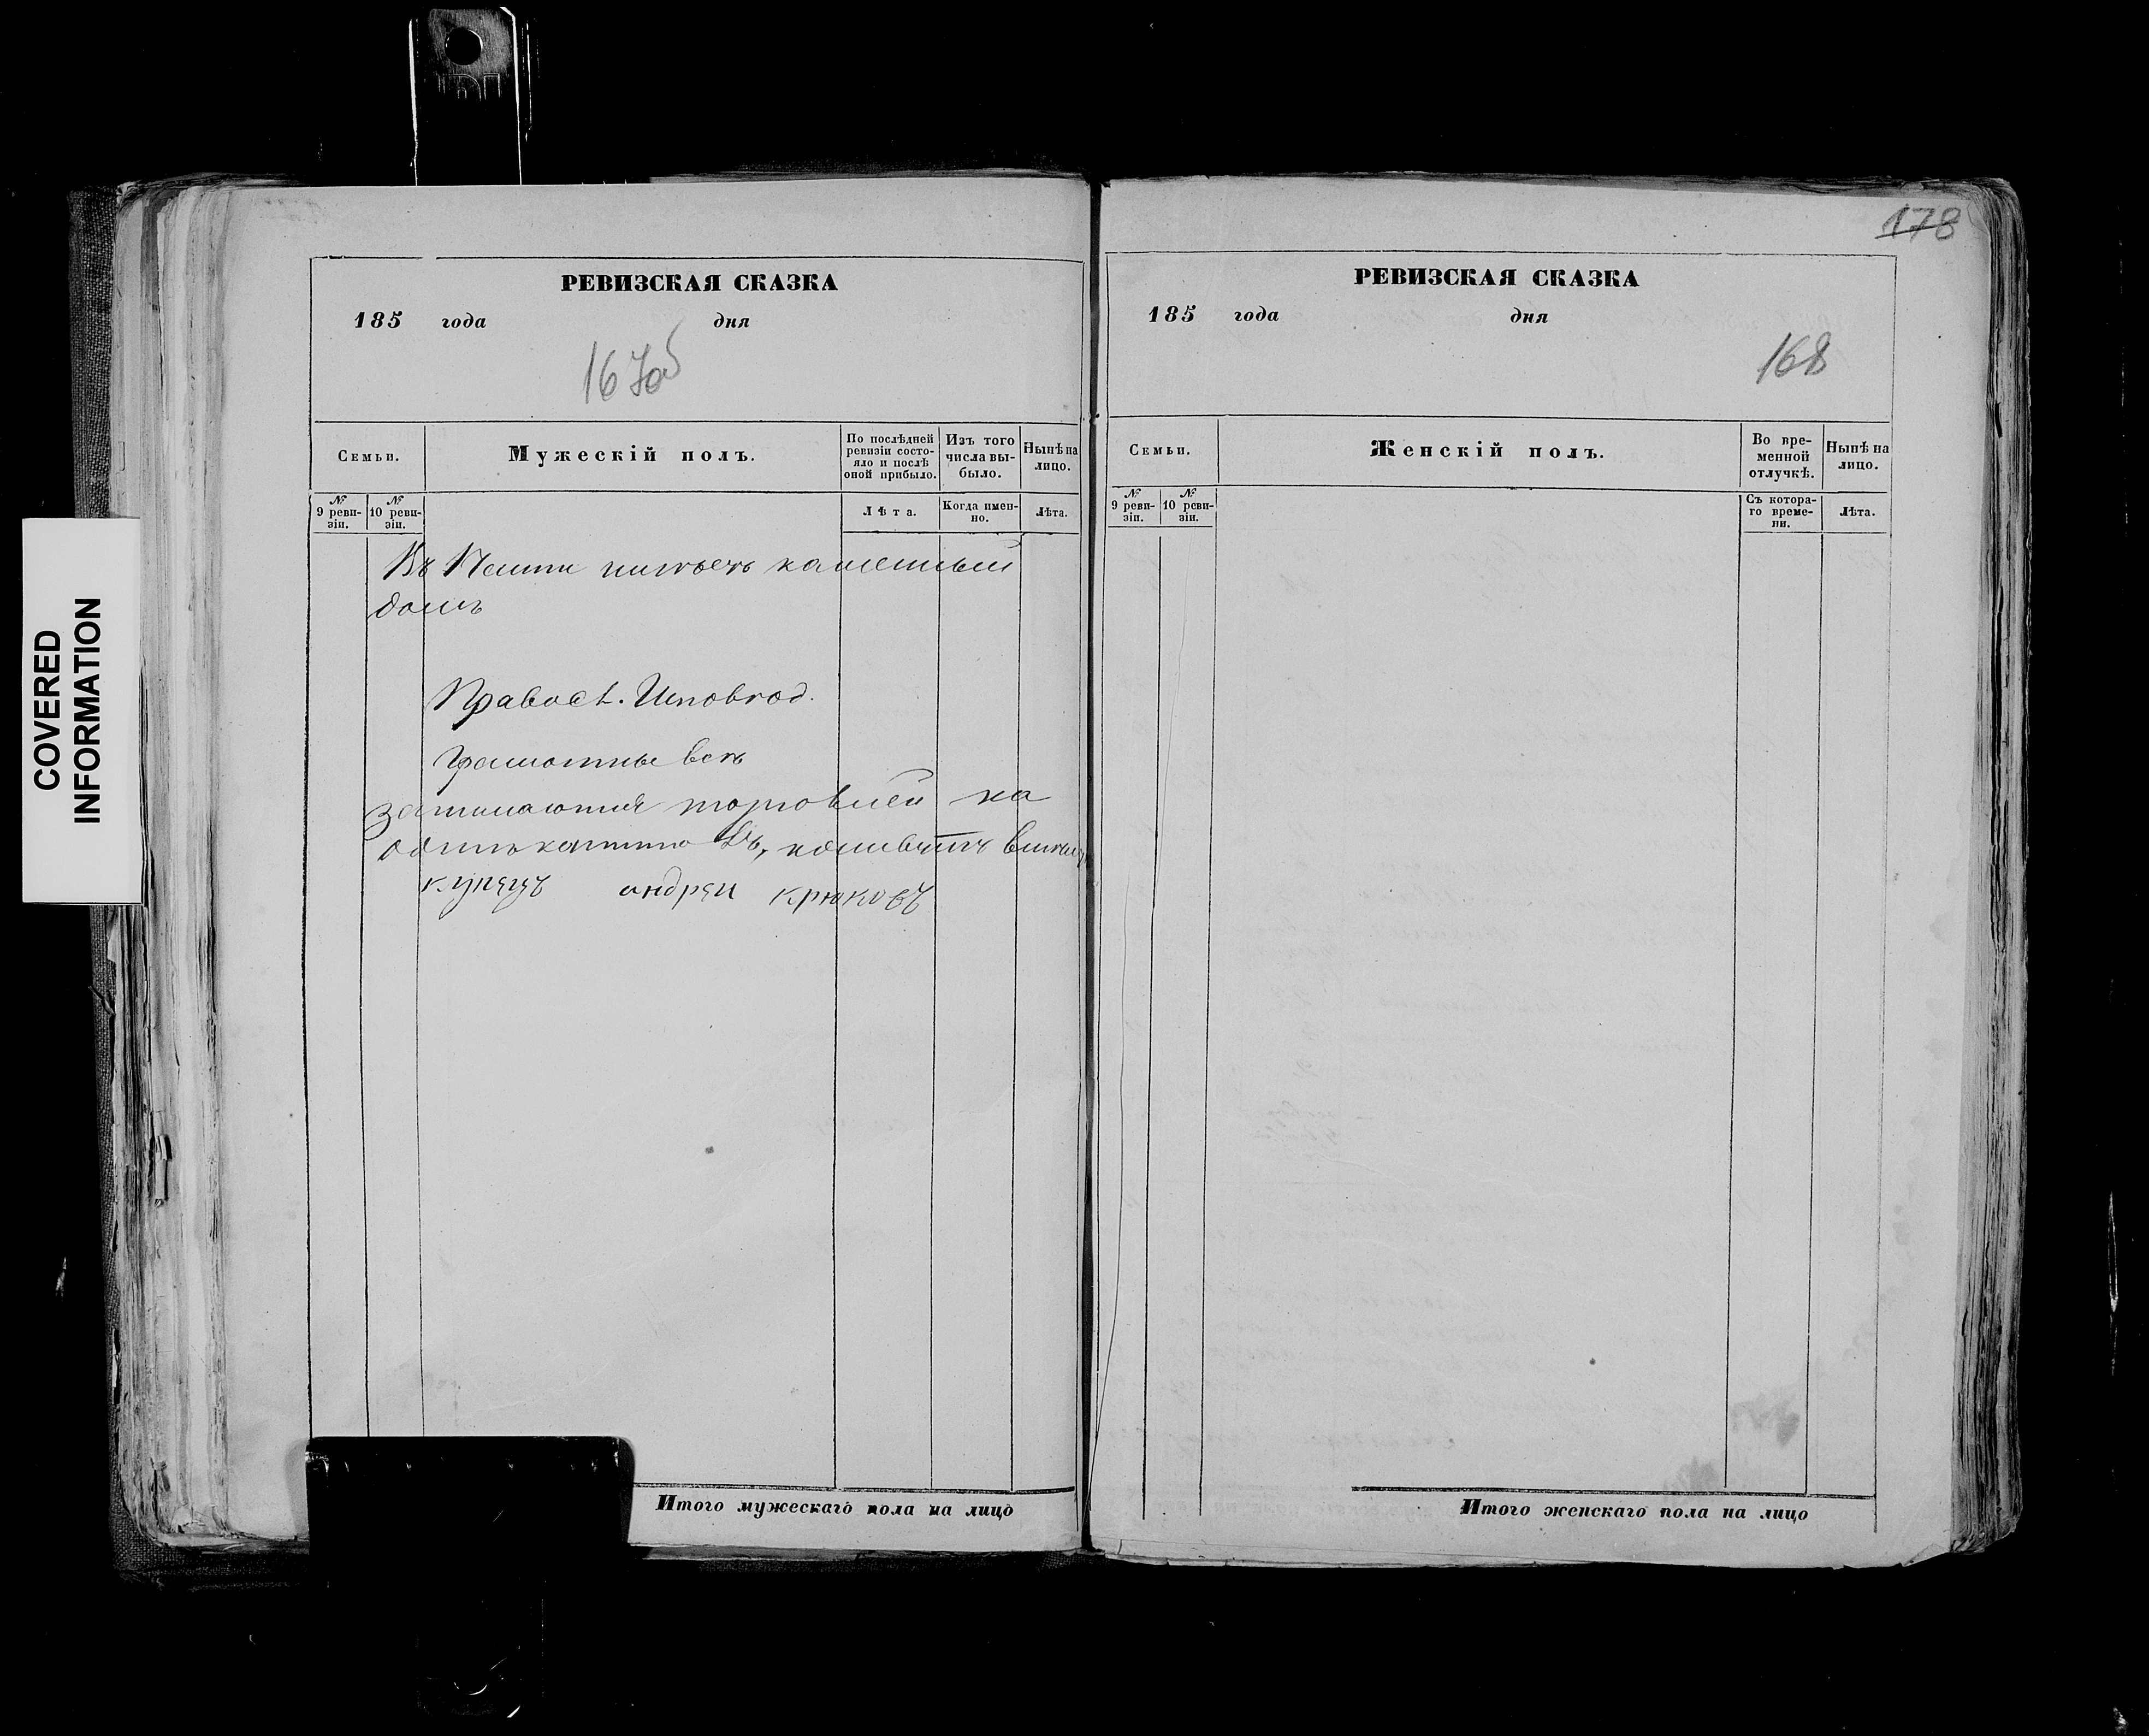 COVERED
INFORMATION
РЕВИЗСКАЯ СКАЗКА
185 года дня
167об
Семьи.
Мужескій полъ.
По послѣдней ревизіи состояло и послѣ оной прибыло.
Изъ того числа выбыло.
Нынѣ на лицо.
№ 9 ревизіи.
№ 10 ревизіи.
Лѣта.
Когда именно.
Лѣта.
Въ имѣетъ каменный
домъ
Правосл. Исповѣд.
Грамотные всѣ
занимаются торговлей на
купецъ андреи крюковъ
Итого мужескаго пола на лицо
178
РЕВИЗСКАЯ СКАЗКА
185 года дня
168
Семьи.
Женскій полъ.
Во временной отлучкѣ.
Нынѣ на лицо.
№ 9 ревизіи.
№ 10 ревизіи.
Съ котораго времени.
Лѣта.
Итого женскаго пола на лицо